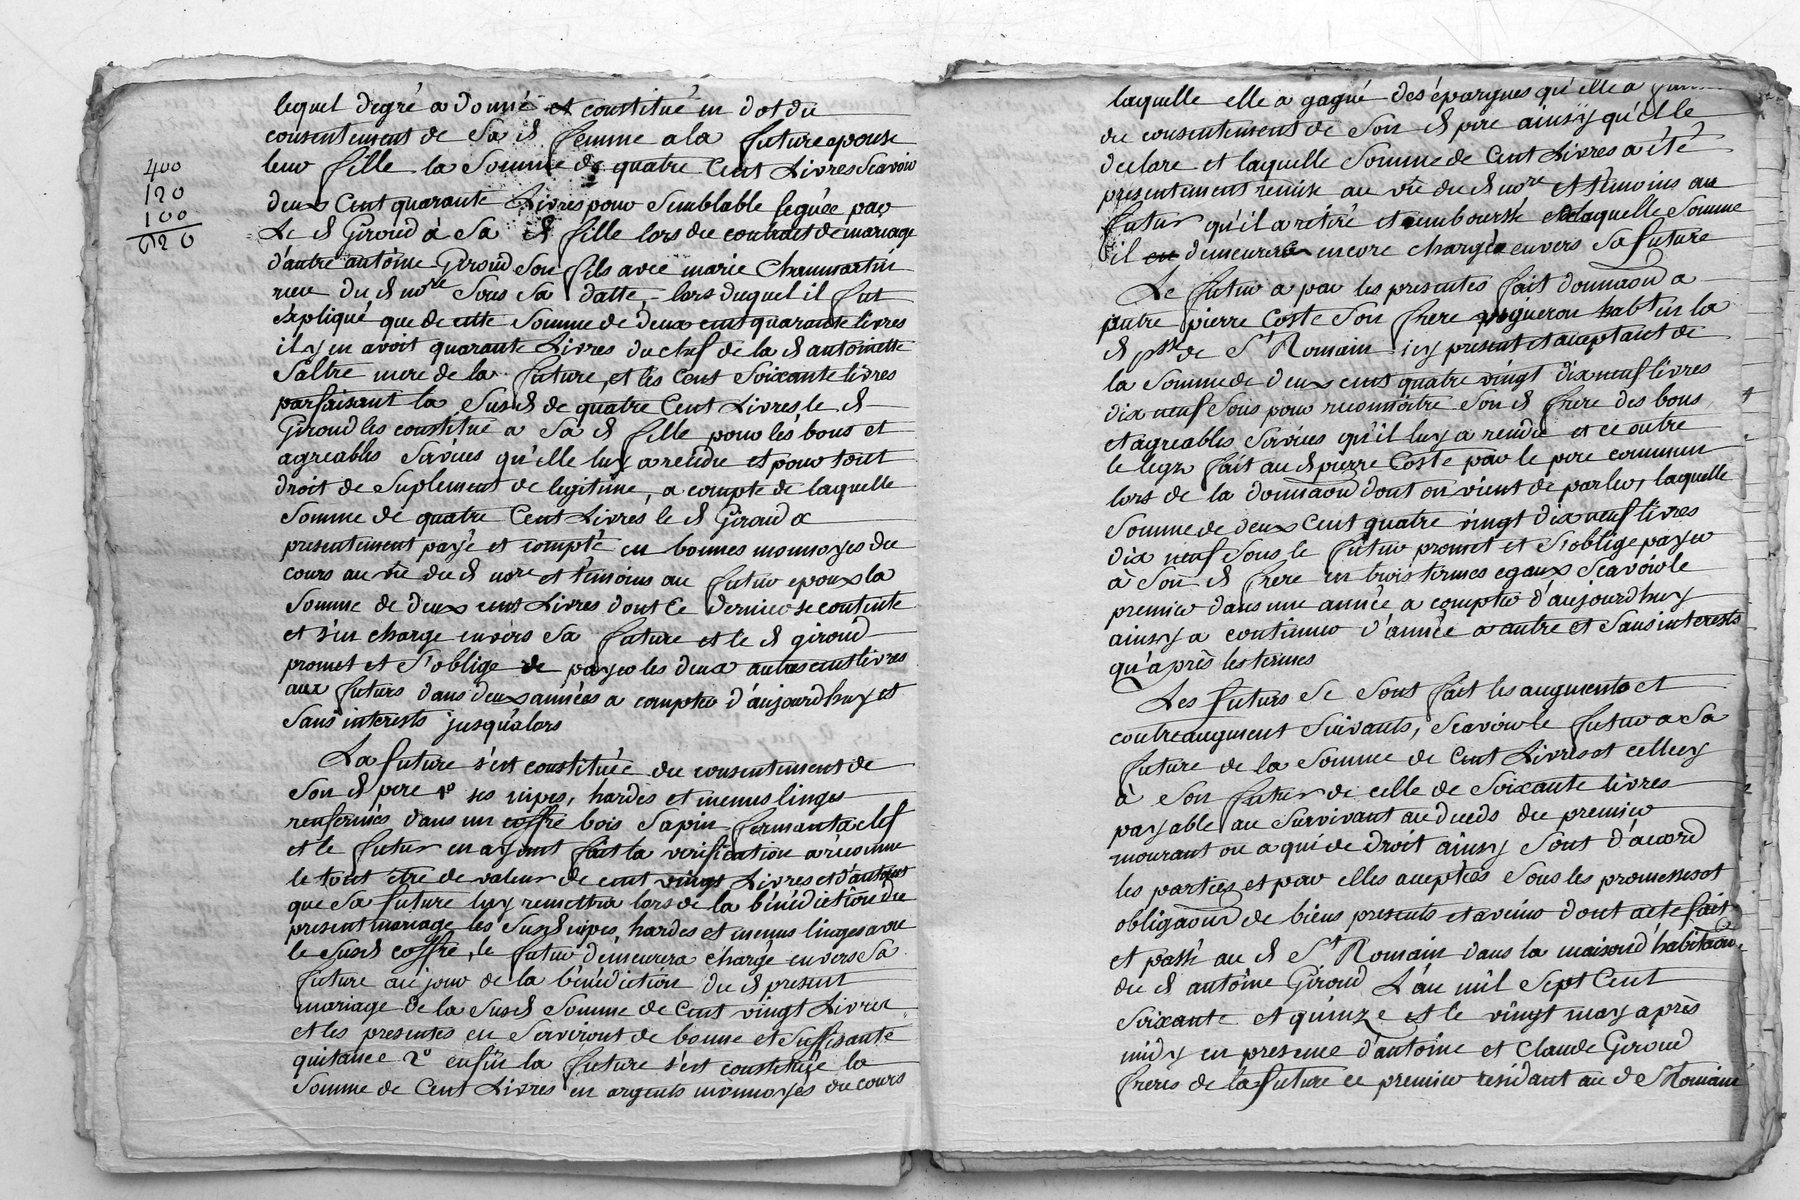 lequel degré a donné et constitué en dot du
consentement de Sa d femme a la future epouse
leur fille la Somme de quatre Cent Livres Scavoir
400
120
100
620
deux Cent quarante Livres pour Semblable leguée par
Le d Giroud à Sa d fille lors du contract de mariage
d'autre antoine Giroud Son fils avec marie Chaumartin
receu du d nore Sous Sa datte, lors duquel il fut
expliqué que de cette Somme de deux cent quarante livres
il y en avoit quarante Livres du chef de la d antoinette
mere de la future, et les Cent Soixante livres
parfaisant la Susd de quatre Cent Livres, le d
Giroud les constitué a Sa d fille pour les bons et
agreables Services qu'elle luy a rendu et pour tout
droit de Suplement de legitime, a compte de laquelle
Somme de quatre Cent Livres le d Giroud a
presentement payé et compté en bonnes monnoyes du
cours au vû du d nore et temoins au futur epoux la
Somme de deux cent Livres dont Ce dernier se contente
et s'en charge envers Sa future et le d giroud
promet et S'oblige de payer les deux autres cent livres
aux futurs dans deux années a compter d'aujourdhuy et
Sans interests jusqu'alors
La future s'est constituée du consentement de
Son d pere 1o ses nipes, hardes et menus linges
renfermés dans un coffre bois Sapin fermant a clef
et le futur en ayant fait la verification a reconnu
le tout etre de valeur de cent vingt Livres et d'autant
que Sa future luy remettra lors de la bénédiction du
present mariage les Susd nipes, hardes et menus linges avec
le Susd coffre, le futur demeurera chargé envers Sa
future au jour de la bénédiction du d present
mariage de la Susd Somme de Cent vingt Livres
et les presentes en Serviront de bonne et Suffisante
quitance 2o enfin la future s'est constituée la
Somme de Cent Livres en argents monnoyés du cours
laquelle elle a gagné des épargnes qu'elle a
du consentement de Son d pere ainsy qu'elle
declare et laquelle Somme de Cent Livres a été
presentement remise au vû du d nore et temoins au
futur qu'il a retiré et emboursé et de laquelle Somme
il en demeurera encore chargé envers Sa future
Le futur a par les presentes fait donnaon a
autre pierre Coste Son frere vigneron habt en la
d psse de St Romain icy present et acceptant de
la Somme de deux cent quatre vingt dix neuf livres
dix neuf Sous pour reconnoître Son d frere des bons
et agreables Services qu'il luy a rendu et ce outre
le legs fait au d pierre Coste par le pere commun
lors de la donnaon dont on vient de parler, laquelle
Somme de deux Cent quatre vingt dix neuf livres
dix neuf Sous le futur promet et S'oblige payer
à Son d frere en trois termes egaux Scavoir le
premier dans une année a compter d'aujourdhuy
ainsy a continuer d'année a autre et Sans interests
qu'après les termes
Les futurs Se Sont fait les augments et
contreaugment Suivants, Scavoir le futur a Sa
future de la Somme de Cent Livres et celle cy
à Son futur de celle de Soixante livres
payable au Survivant au deceds du premier
mourant ou a qui de droit ainsy Sont d'acord
les parties et par elles acceptées Sous les promesses et
obligaons de biens presents et avenir dont acte fait
et passé au d St Romain dans la maison d'habitaon
du d antoine Giroud L'an mil Sept Cent
Soixante et quinze et le vingt may après
midy en presence d'antoine et Claude Giroud
freres de la future ce premier residant au d St Romain